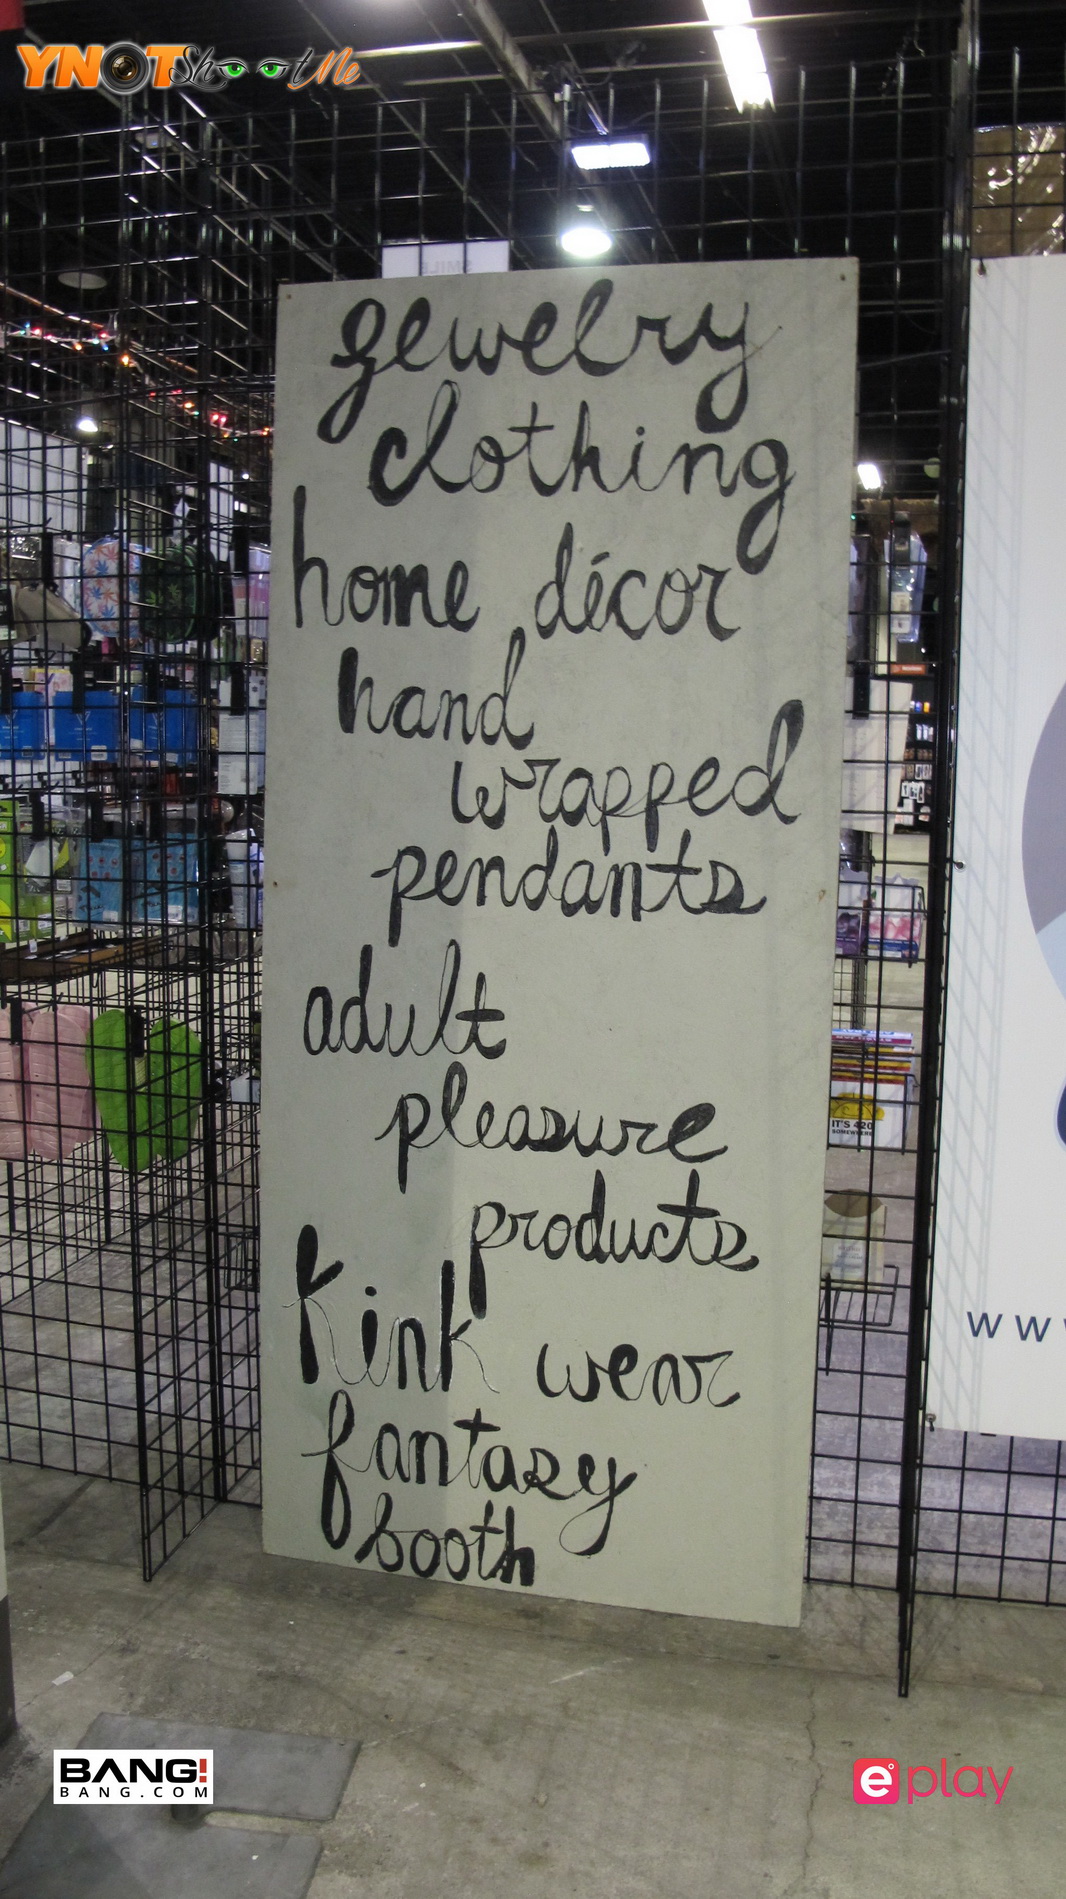 YNOT Shoot Me
SMILE
gewelry
clothing
home décor
hand
wrapped
pendants
adult
pleasure
products
kink wear
fantasy
booth
IT'S 420
SOMEWHERE
WWW
BANG!
BANG.COM
eplay